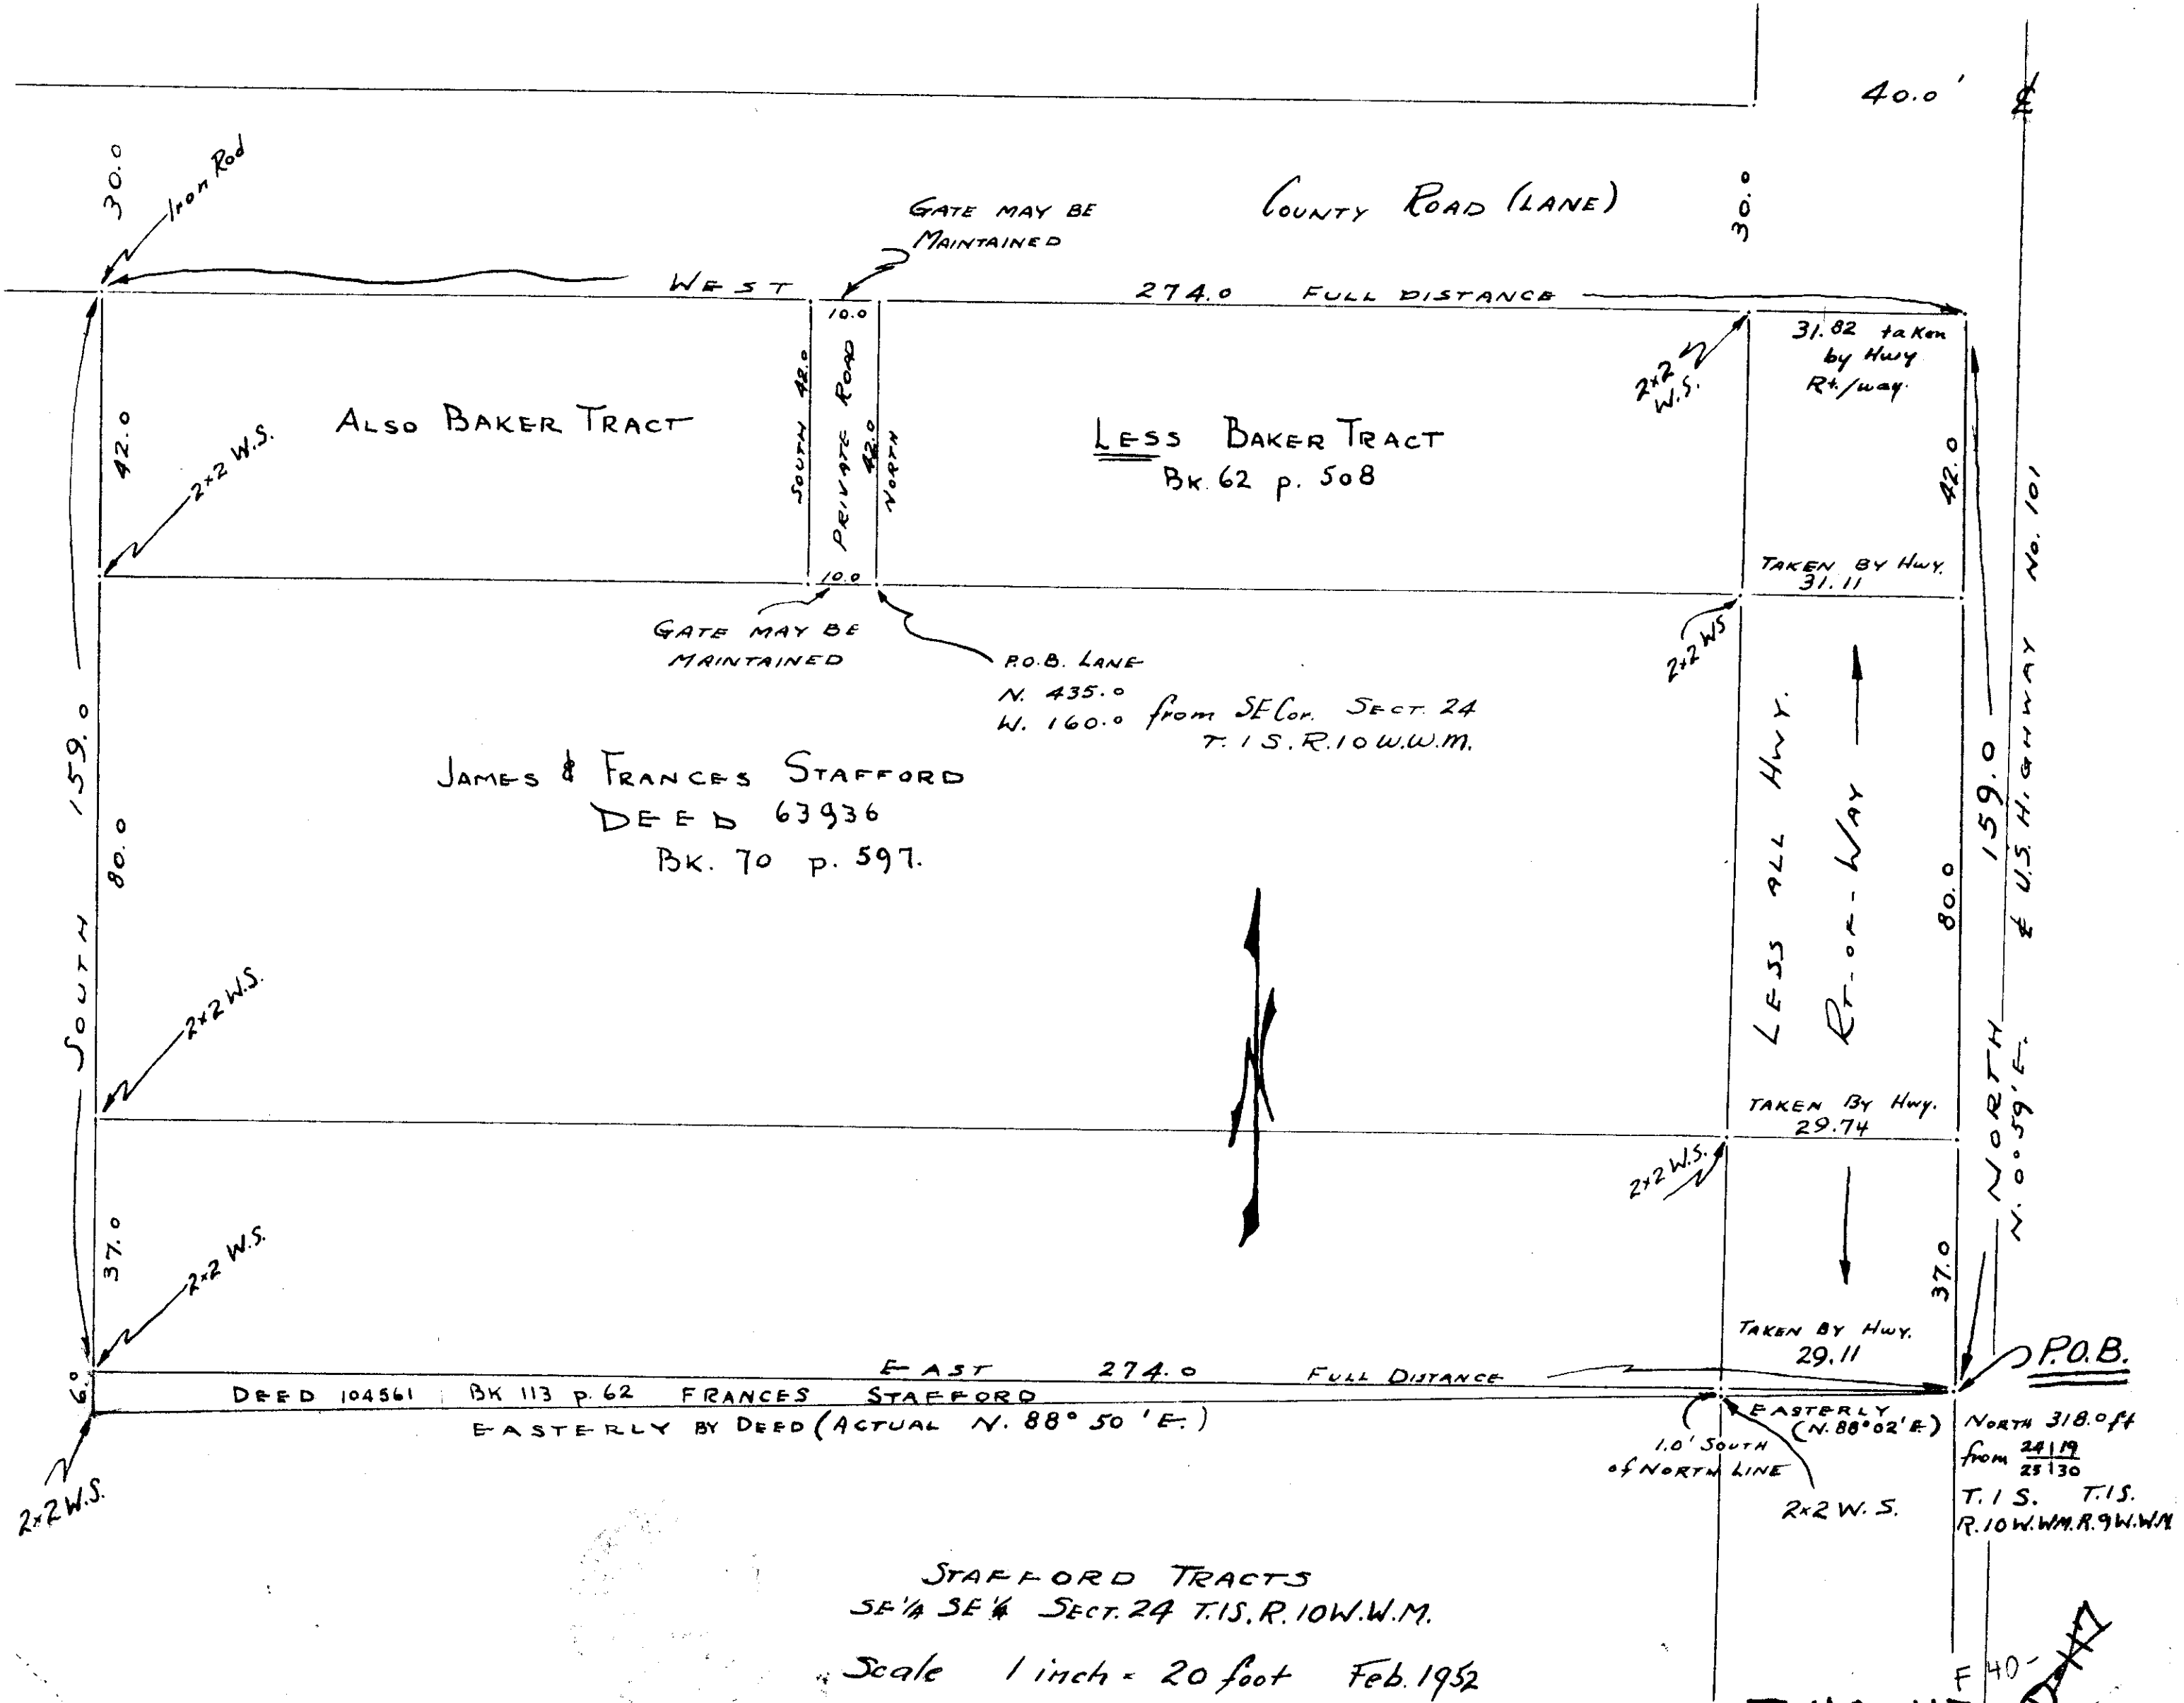 40.0'
30.0
Iron Rod
GATE MAY BE
MAINTAINED
COUNTY ROAD (LANE)
30.0
WEST
274.0 FULL DISTANCE
10.0
31.82 taken
by Hwy
Rt./way.
2x2
W.S.
SOUTH 42.0
PRIVATE ROAD
42.0
NORTH
ALSO BAKER TRACT
42.0
2x2 W.S.
LESS BAKER TRACT
BK. 62 p. 508
42.0
TAKEN BY HWY.
31.11
10.0
GATE MAY BE
MAINTAINED
P.O.B. LANE
N. 435.0
W. 160.0 from SE Cor. SECT. 24
T. 1 S. R. 10 W. W. M.
2x2 WS
SOUTH 159.0
80.0
JAMES & FRANCES STAFFORD
DEED 63936
BK. 70 p. 597.
LESS ALL HWY.
RT-OF-WAY
80.0
NORTH 159.0
N. 0° 59' E. ℄ U.S. HIGHWAY No. 101
N
2x2 W.S.
TAKEN BY Hwy.
29.74
2x2 W.S.
37.0
2x2 W.S.
37.0
TAKEN BY HWY.
29.11
P.O.B.
EAST 274.0 FULL DISTANCE
6.0
DEED 104561 BK 113 p. 62 FRANCES STAFFORD
EASTERLY BY DEED (ACTUAL N. 88° 50' E.)
EASTERLY
(N. 88° 02' E.)
1.0' SOUTH
of NORTH LINE
2x2 W.S.
2x2 W.S.
NORTH 318.0 ft
from 24|19
25|30
T. 1 S. T. 1 S.
R. 10 W. WM. R. 9 W. WM
STAFFORD TRACTS
SE 1/4 SE 1/4 SECT. 24 T. 1 S. R. 10 W. W. M.
Scale 1 inch = 20 foot Feb. 1952
40-